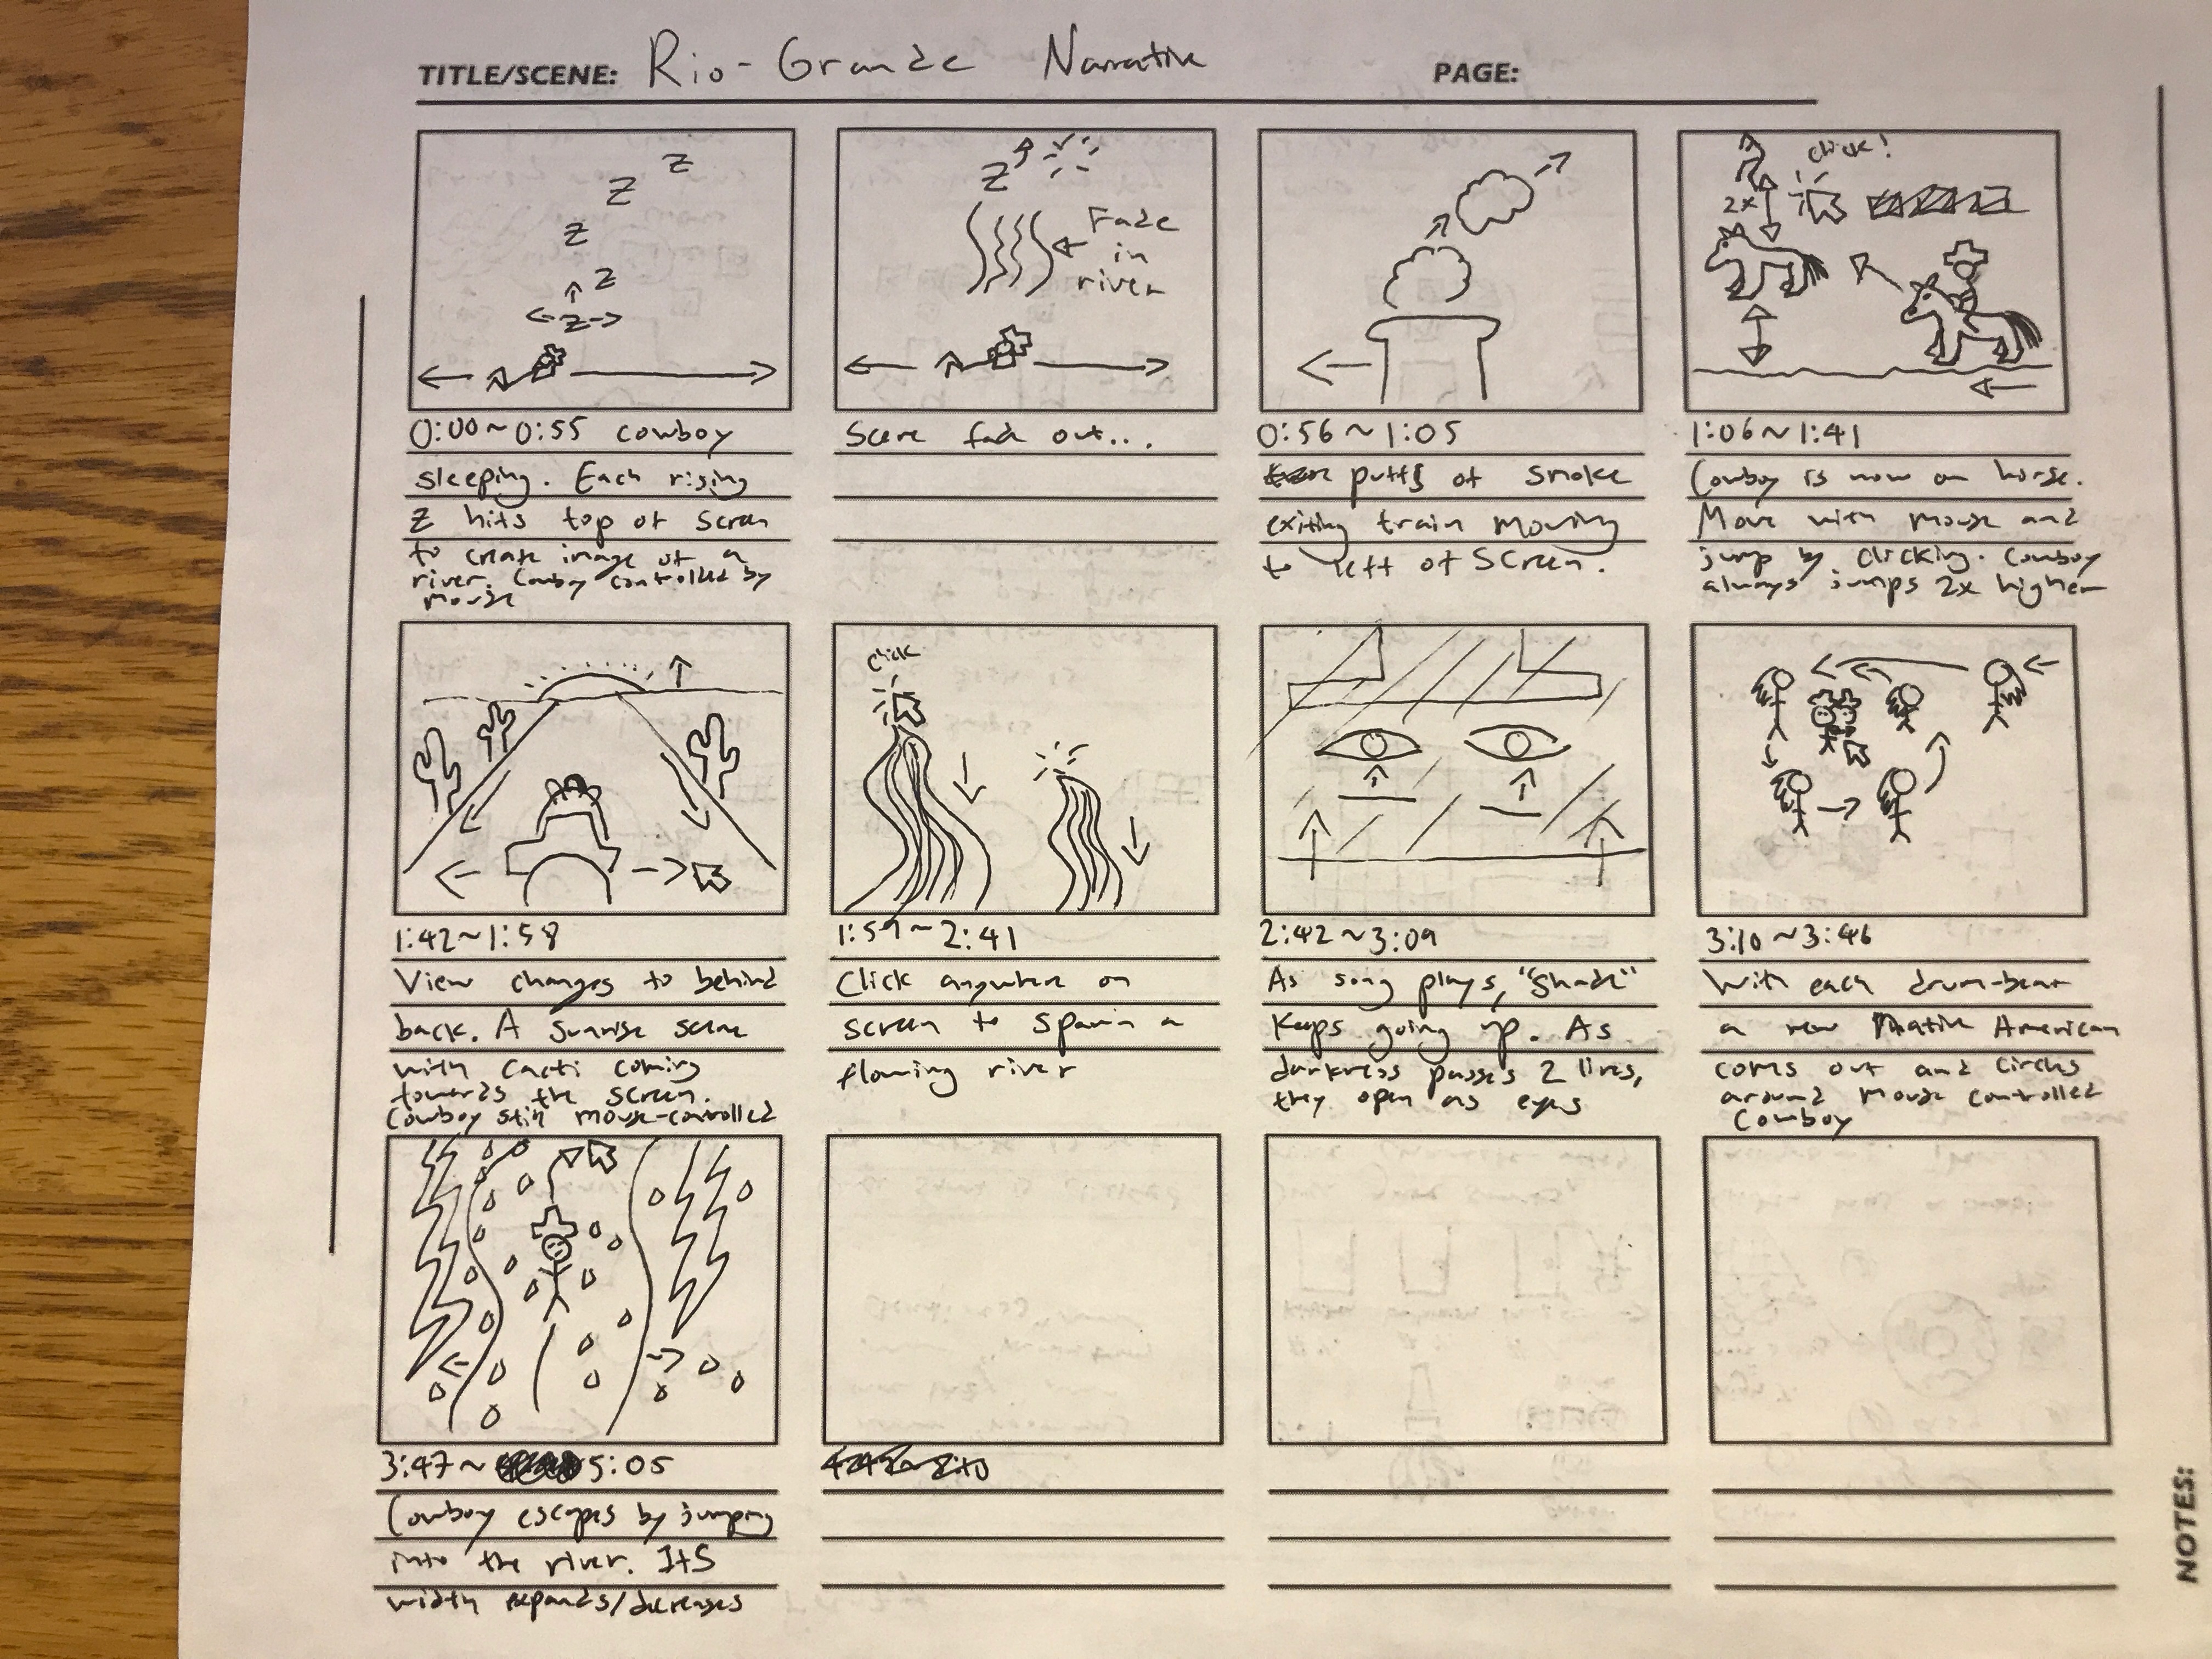 TITLE/SCENE: Rio-Grande Narrative
PAGE:
z
z
z
z
z
0:00~0:55 cowboy
sleeping. Each rising
z hits top of screen
to create image of a
river. Cowboy controlled by
mouse
z
Fade
in
river
Scene fade out...
0:56~1:05
puffs of smoke
exiting train moving
to left of screen.
click!
2x
1:06~1:41
Cowboy is now on horse.
Move with mouse and
jump by clicking. Cowboy
always jumps 2x higher
1:42~1:58
View changes to behind
back. A sunrise scene
with cacti coming
towards the screen.
Cowboy still mouse-controlled
click
1:59~2:41
Click anywhere on
screen to spawn a
flowing river
2:42~3:09
As song plays, "shade"
keeps going up. As
darkness passes 2 lines,
they open as eyes
3:10~3:46
With each drum-beat
a new Native American
comes out and circles
around mouse controlled
Cowboy
3:47~5:05
Cowboy escapes by jumping
into the river. Its
width expands/decreases
NOTES: